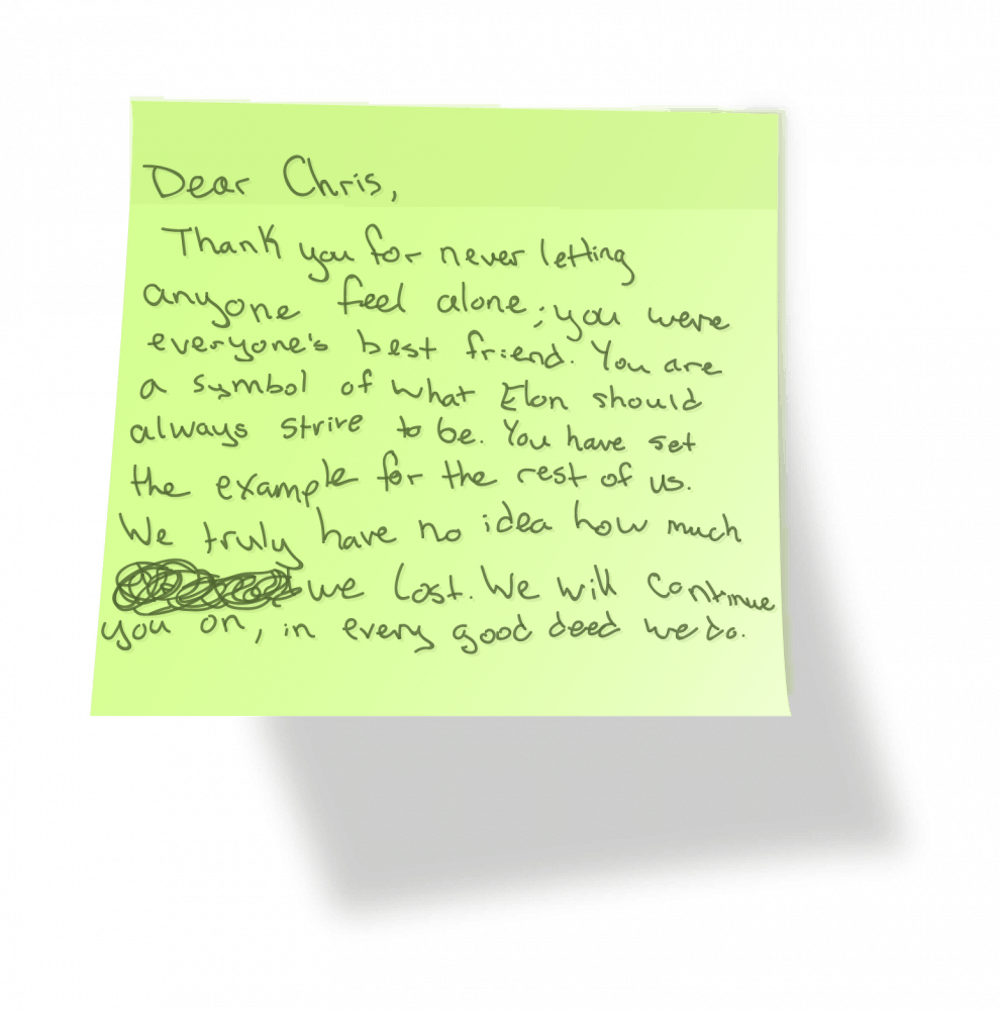 Dear Chris,
Thank you for never letting
anyone feel alone; you were
everyone's best friend. You are
a symbol of what Elon should
always strive to be. You have set
the example for the rest of us.
We truly have no idea how much
we lost. We will continue
you on, in every good deed we do.